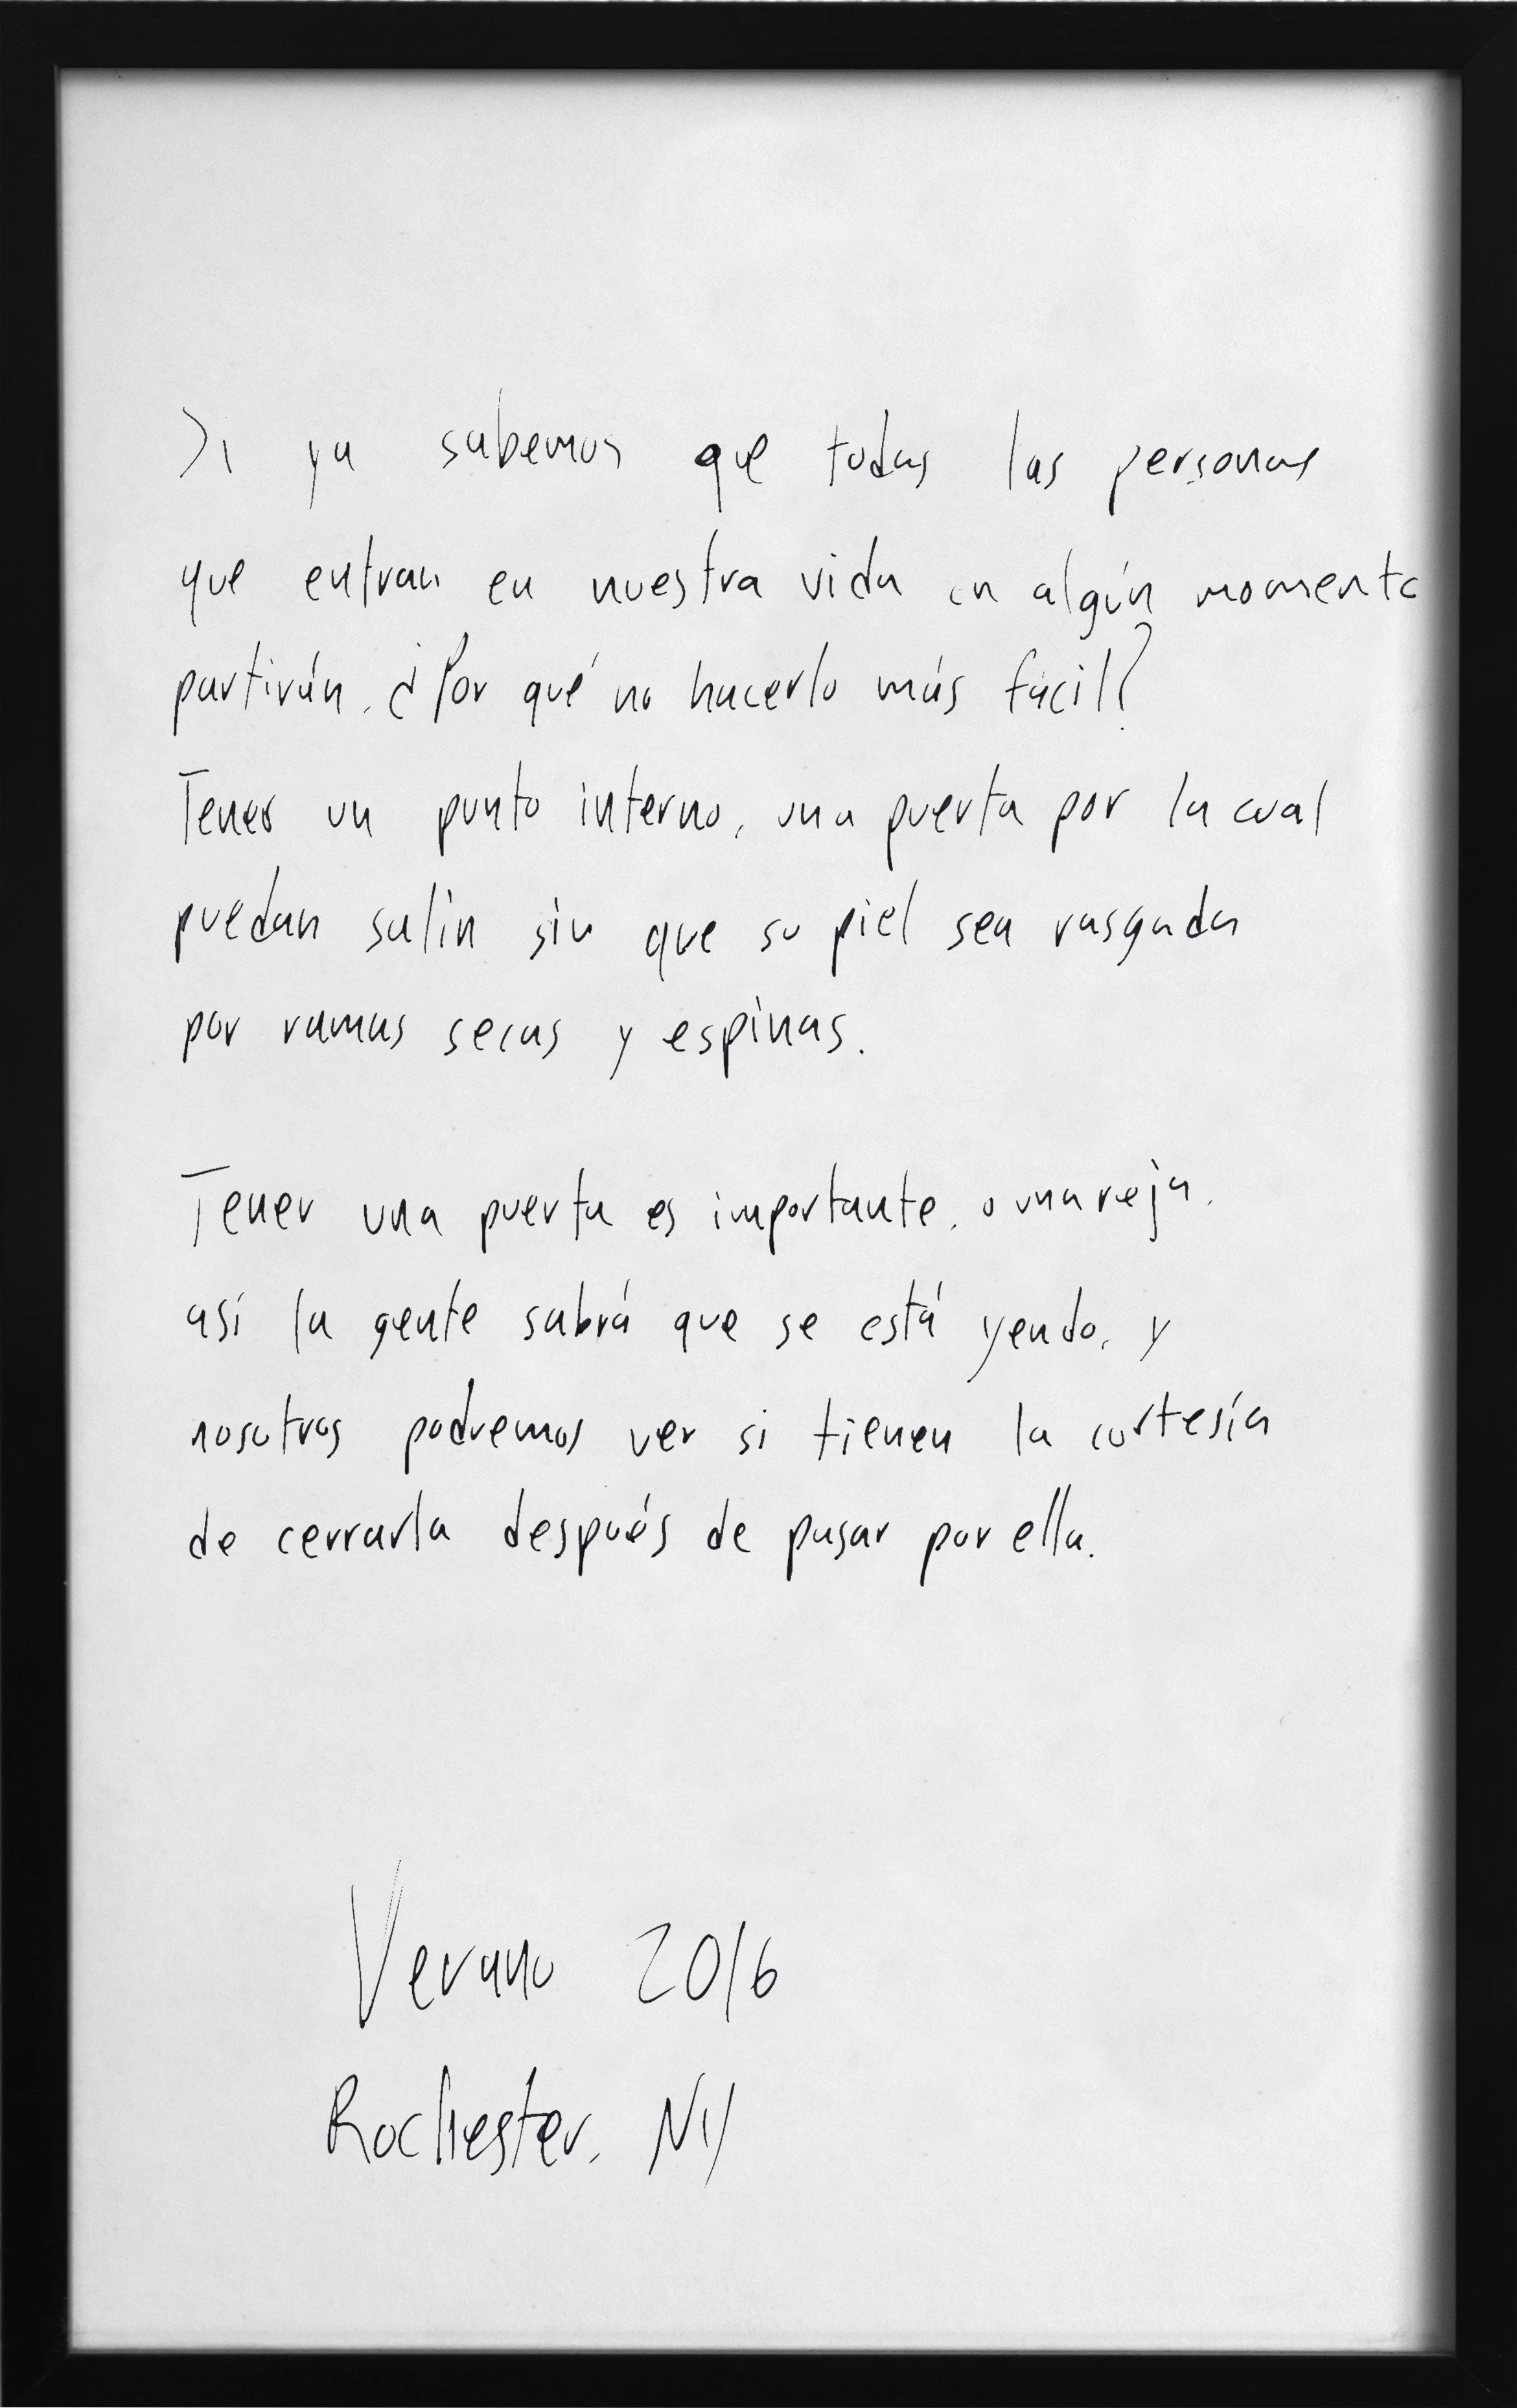 Si ya sabemos que todas las personas
que entran en nuestra vida en algún momento
partirán. ¿Por qué no hacerlo más fácil?
Tener un punto interno, una puerta por la cual
puedan salir sin que su piel sea rasgada
por ramas secas y espinas.
Tener una puerta es importante, o una reja,
así la gente sabrá que se está yendo, y
nosotros podremos ver si tienen la cortesía
de cerrarla después de pasar por ella.
Verano 2016
Rochester, NY